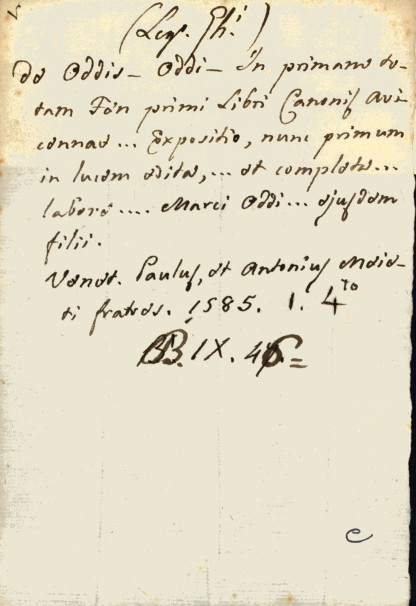 (Leg. Gh.i)
De Oddis - Oddi - In primam to-
tam Fen primi Libri Canonis Avi-
cennae ... Expositio, nunc primum
in lucem edita, ... et completa ...
labore .... Marci Oddi ... ejusdem
filii.
Venet. Paulus, et Antonius Meie-
ti fratres. 1585. 1. 4to
BB. IX. 46=
e